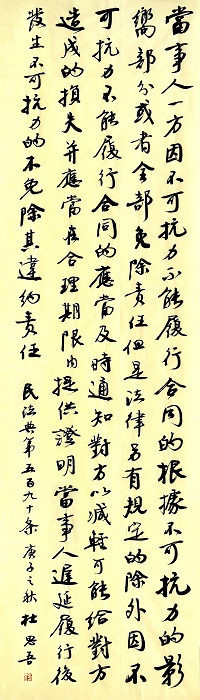 當事人一方因不可抗力不能履行合同的根據不可抗力的影
嚮部分或者全部免除責任但是法律另有規定的除外因不
可抗力不能履行合同的應當及時通知對方以減輕可能給對方
造成的損失并應當在合理期限内提供證明當事人遲延履行後
發生不可抗力的不免除其違約責任
民法典第五百九十條庚子之秋杜思吾